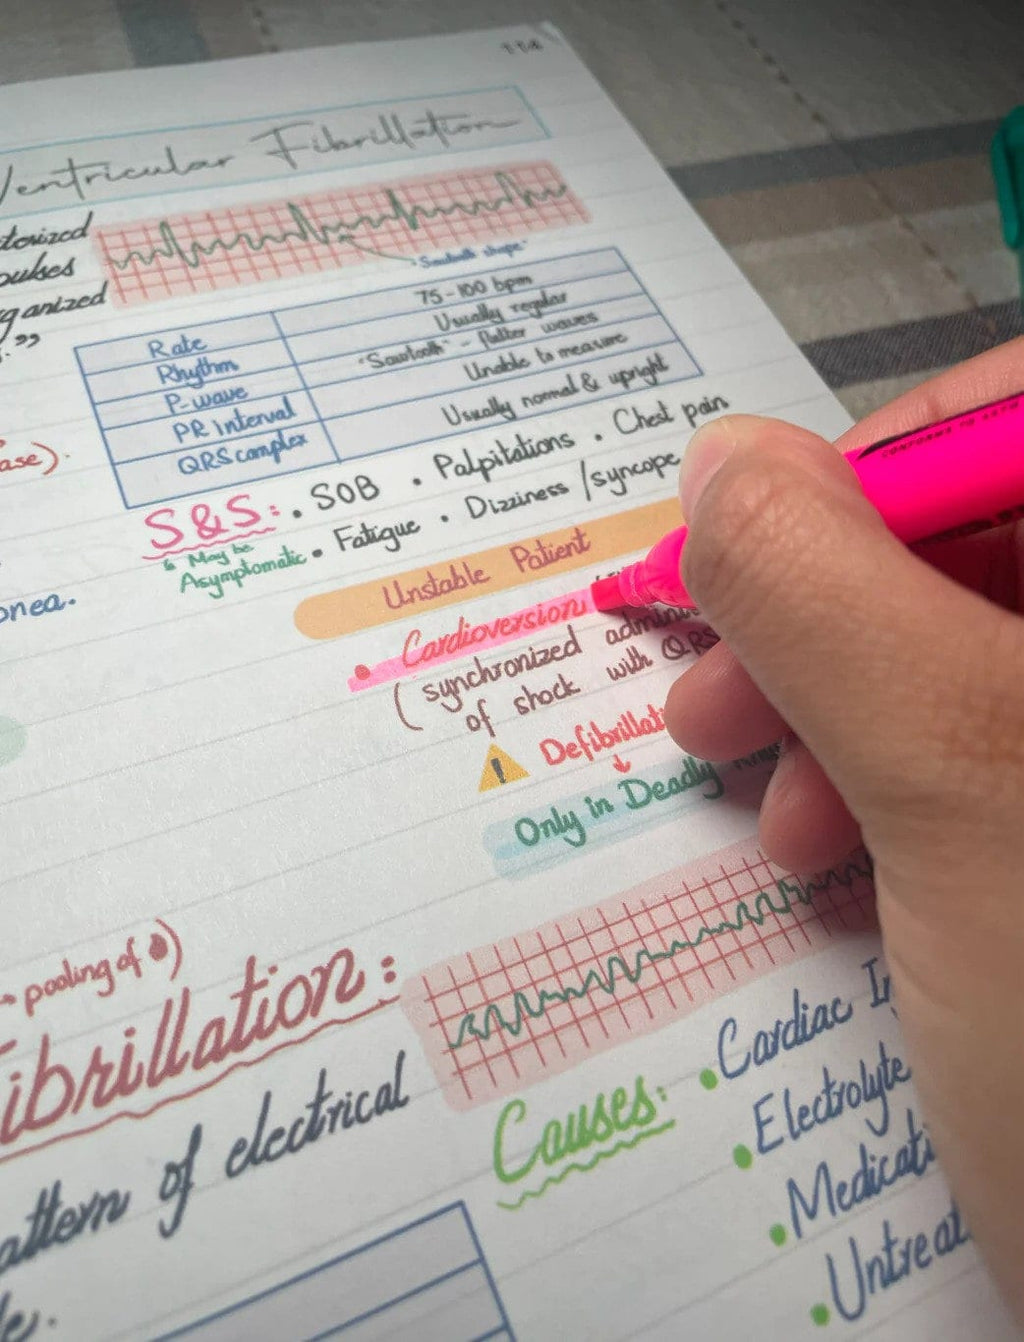 Ventricular Fibrillation
pulses
organized
."
"Sawtooth shape"
Rate 75-100 bpm
Rhythm Usually regular
P-wave "Sawtooth" - flutter waves
PR interval Unable to measure
QRS complex Usually normal & upright
ase).
S&S: • SOB • Palpitations • Chest pain
↳ May be
Asymptomatic • Fatigue • Dizziness/syncope
Unstable Patient
onea.
• Cardioversion
(synchronized
of shock with QRS
! Defibrillati
↓
Only in Deadly
→ pooling of
Fibrillation:
attern of electrical
Causes: • Cardiac
• Electrolyte
• Medicati
• Untreat
CONFORMS TO ASTM